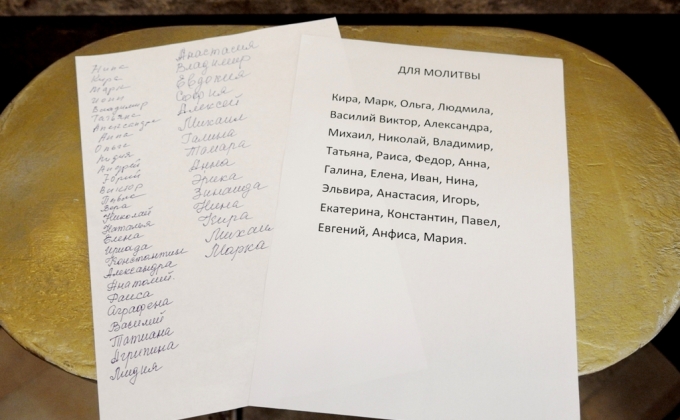 Нина
Кира
Марк
Иоан
Владимир
Татьяна
Александра
Анна
Ольга
Лидия
Андрей
Юрий
Виктор
Павел
Вера
Николай
Наталья
Елена
Ираида
Константин
Александра
Анатолий.
Раиса
Аграфена
Василий
Татиана
Агрипина
Лидия
Анастасия
Владимир
Евдокия
София
Алексей
Михаил
Галина
Тамара
Анна
Эрика
Зинаида
Нина
Кира
Михаил
Марка
ДЛЯ МОЛИТВЫ
Кира, Марк, Ольга, Людмила,
Василий Виктор, Александра,
Михаил, Николай, Владимир,
Татьяна, Раиса, Федор, Анна,
Галина, Елена, Иван, Нина,
Эльвира, Анастасия, Игорь,
Екатерина, Константин, Павел,
Евгений, Анфиса, Мария.